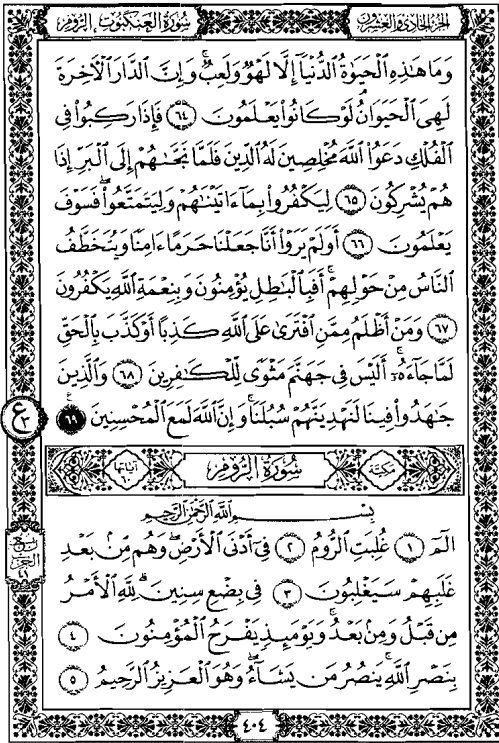 الجزء الحادي والعشرون
سورة العنكبوت، الروم
وَمَا هَٰذِهِ الْحَيَوٰةُ الدُّنْيَآ إِلَّا لَهْوٌ وَلَعِبٌ ۚ وَإِنَّ الدَّارَ الْأَخِرَةَ
لَهِىَ الْحَيَوَانُ ۚ لَوْ كَانُوا۟ يَعْلَمُونَ ٦٤ فَإِذَا رَكِبُوا۟ فِى
الْفُلْكِ دَعَوُا۟ اللَّهَ مُخْلِصِينَ لَهُ الدِّينَ فَلَمَّا نَجَّىٰهُمْ إِلَى الْبَرِّ إِذَا
هُمْ يُشْرِكُونَ ٦٥ لِيَكْفُرُوا۟ بِمَآ ءَاتَيْنَٰهُمْ وَلِيَتَمَتَّعُوا۟ ۖ فَسَوْفَ
يَعْلَمُونَ ٦٦ أَوَلَمْ يَرَوْا۟ أَنَّا جَعَلْنَا حَرَمًا ءَامِنًا وَيُتَخَطَّفُ
النَّاسُ مِنْ حَوْلِهِمْ ۚ أَفَبِالْبَٰطِلِ يُؤْمِنُونَ وَبِنِعْمَةِ اللَّهِ يَكْفُرُونَ
٦٧ وَمَنْ أَظْلَمُ مِمَّنِ افْتَرَىٰ عَلَى اللَّهِ كَذِبًا أَوْ كَذَّبَ بِالْحَقِّ
لَمَّا جَآءَهُۥٓ ۚ أَلَيْسَ فِى جَهَنَّمَ مَثْوًى لِّلْكَٰفِرِينَ ٦٨ وَالَّذِينَ
جَٰهَدُوا۟ فِينَا لَنَهْدِيَنَّهُمْ سُبُلَنَا ۚ وَإِنَّ اللَّهَ لَمَعَ الْمُحْسِنِينَ ٦٩
ع ٣
مكية
سُورَةُ الرُّومِ
آياتها ٦٠
بِسْمِ اللَّهِ الرَّحْمَٰنِ الرَّحِيمِ
الٓمٓ ١ غُلِبَتِ الرُّومُ ٢ فِىٓ أَدْنَى الْأَرْضِ وَهُم مِّنۢ بَعْدِ
غَلَبِهِمْ سَيَغْلِبُونَ ٣ فِى بِضْعِ سِنِينَ ۗ لِلَّهِ الْأَمْرُ
مِن قَبْلُ وَمِنۢ بَعْدُ ۚ وَيَوْمَئِذٍ يَفْرَحُ الْمُؤْمِنُونَ ٤
بِنَصْرِ اللَّهِ ۚ يَنصُرُ مَن يَشَآءُ ۖ وَهُوَ الْعَزِيزُ الرَّحِيمُ ٥
٤٠٤